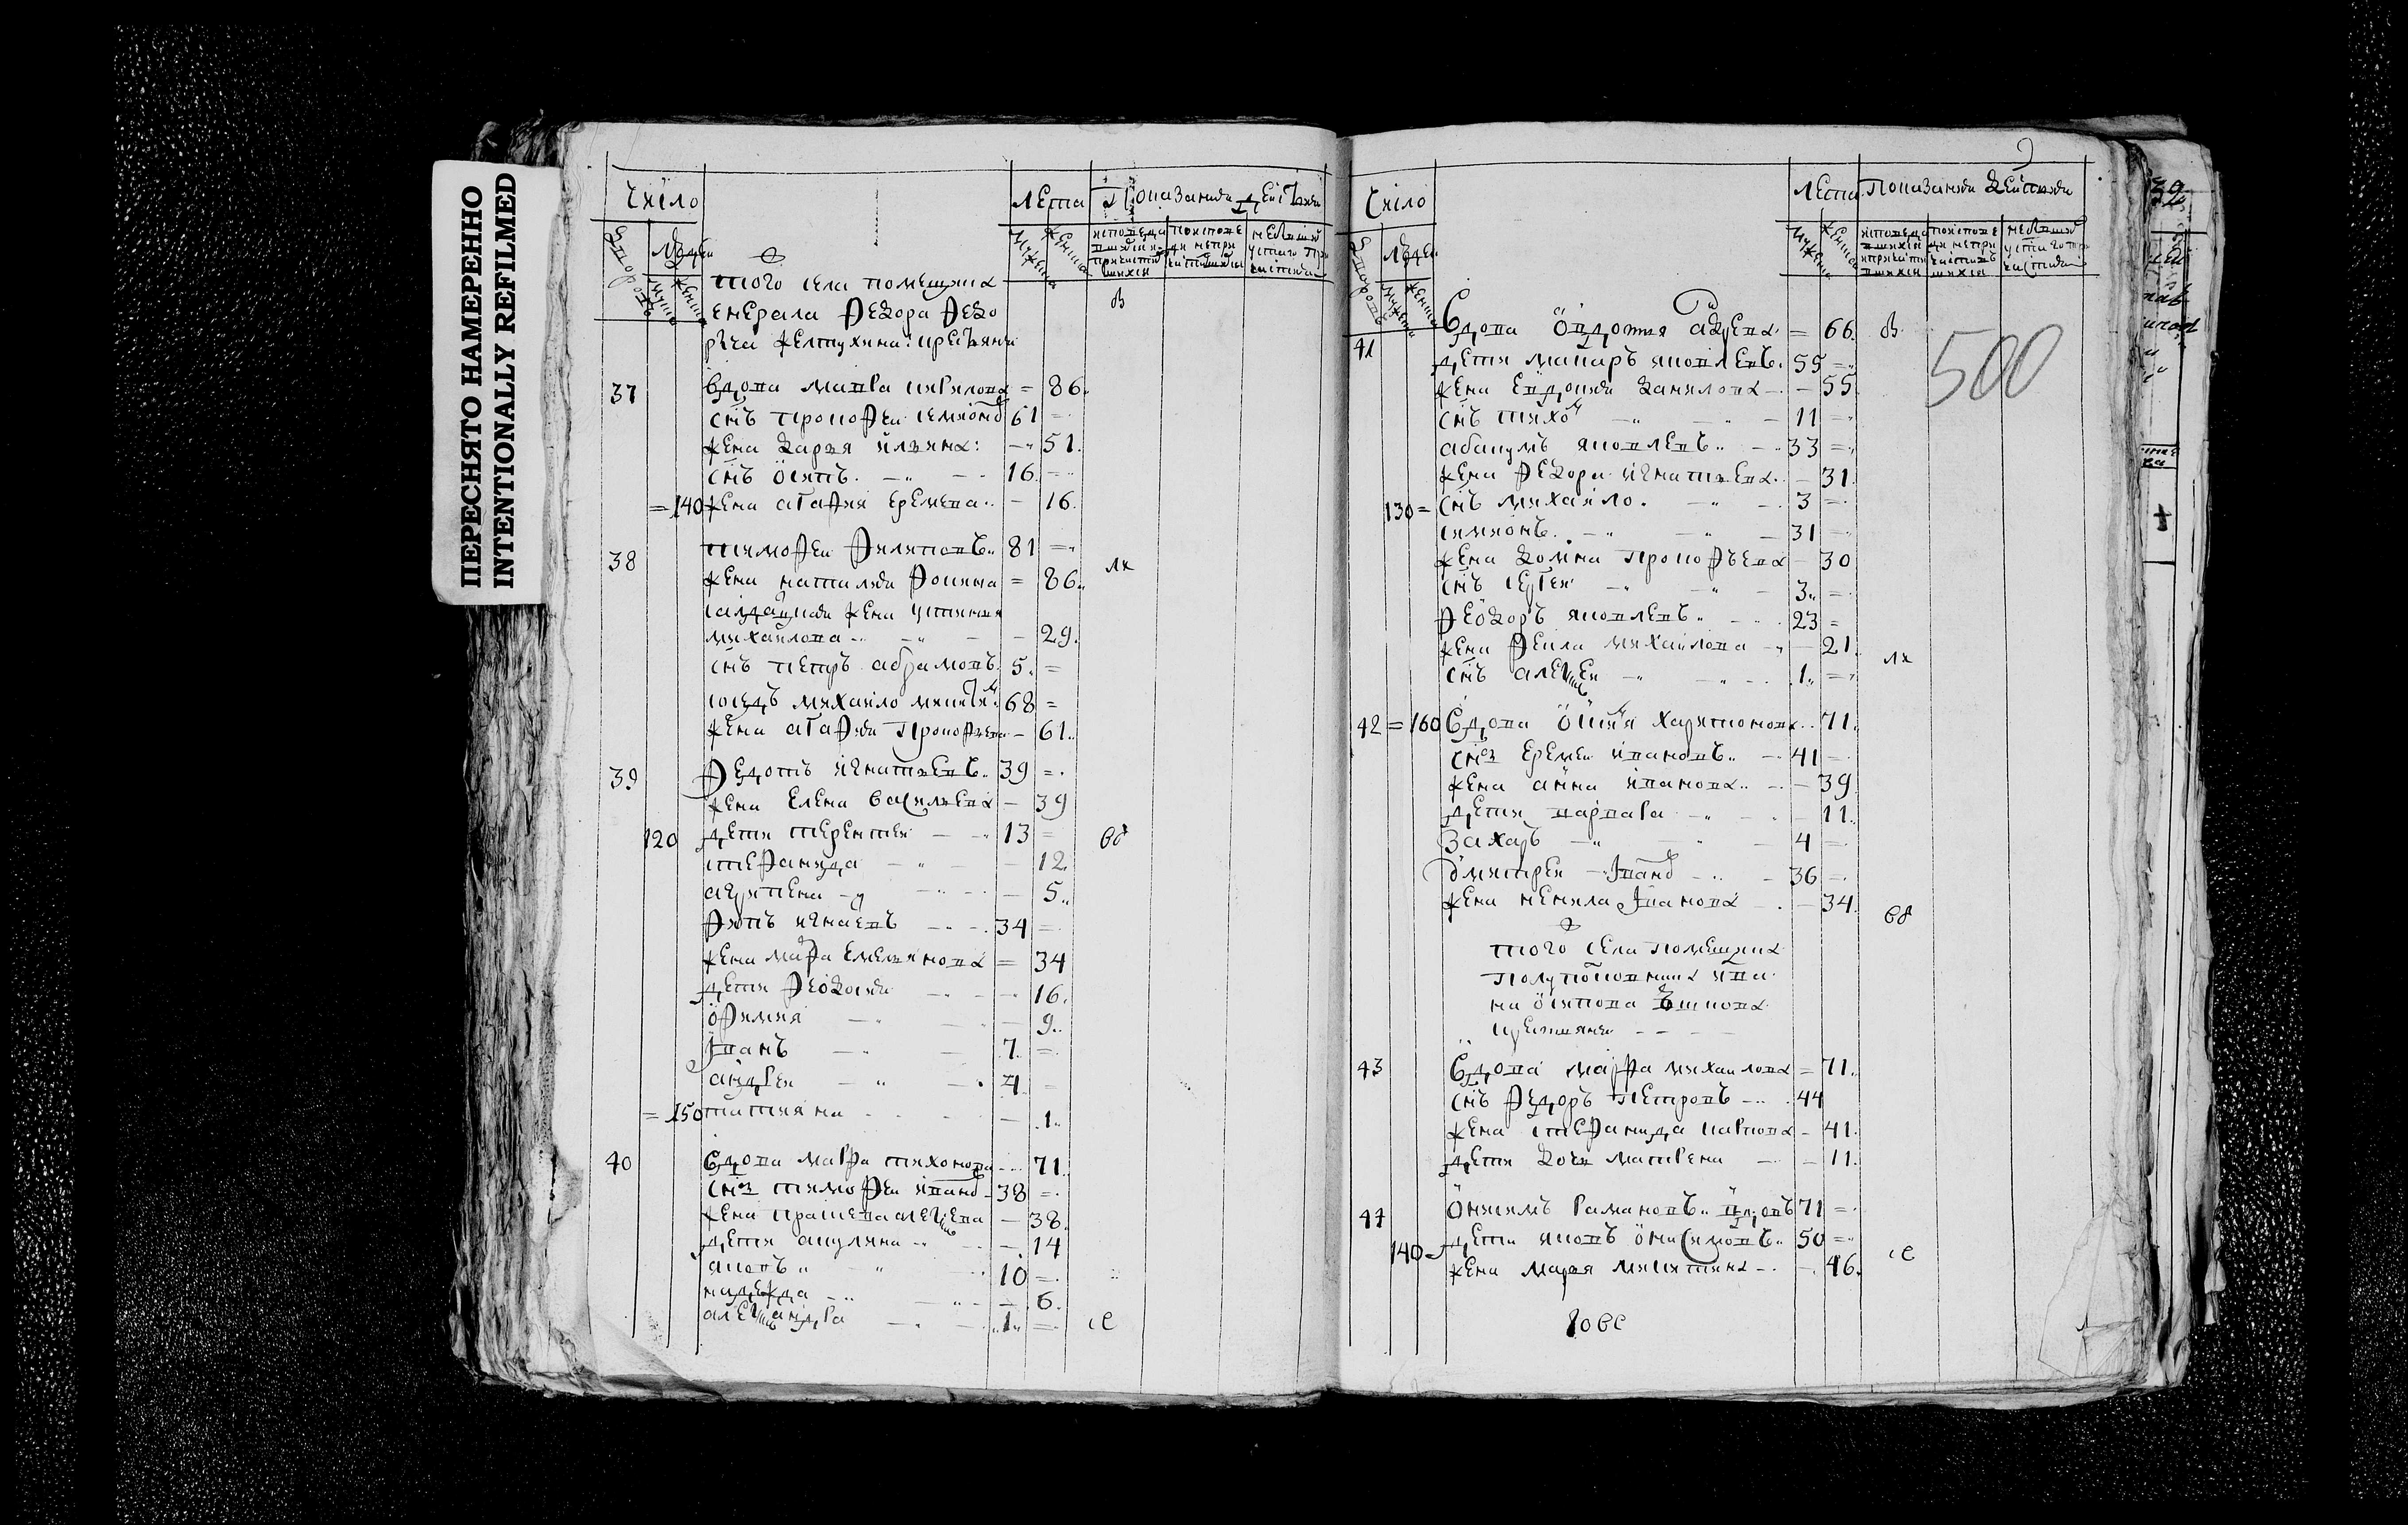 ПЕРЕСНЯТО НАМЕРЕННО
INTENTIONALLY REFILMED
Число
Лета
Показание действа
того села помещика
енерала Федора Федо
рыча крестьяне
37 вдова Марѳа Кирилова = 86
снъ Прокофей Семионов 61 =
жена Дарья Ильина — 51
снъ Осипъ 16 =
= 140 жена Агафия Еремеева — 16
38 Тимофей Филиповъ 81 =
жена Наталия Фокина = 86
салдацкая жена Устиния
Михайлова — 29
снъ Петръ Абрамовъ 5 =
соседъ Михайло Никити 68 =
жена Агафия Прокофьева — 61
39 Федотъ Игнатьевъ 39 =
жена Елена Васильева — 39
120 дети Терентей 13 =
Стефанида — 12
Агрипена — 5
Игнаевъ 34 =
жена Марфа Емельянова = 34
дети Феодосия — 16
Офимия — 9
Iванъ 7 =
Андрей 4 =
= 150 Татияна — 1
40 вдова Марфа Тихонова — 71
снъ Тимофей Иванов 38 =
жена Праскева Алексеева — 38
дети Акулина — 14
Яковъ 10 =
Надежда — 6
Александра 1 =
се
Число
Лета
Показание действа
500
41 вдова Овдотия Авдеева = 66
дети Макаръ Яковлевъ 55 =
жена Евдокия Данилова — 55
снъ Тихо 11 =
Абакумъ Яковлевъ 33 =
жена Федора Игнатьева — 31
130 = снъ Михайло 3 =
Симионъ 31 =
жена Домна Прокофьева — 30
снъ Сергей 3 =
Феодоръ Яковлевъ 23 =
жена Фекла Михайлова — 21
снъ Алексей 1 =
42 = 160 вдова Харитонова 71
снъ Еремей Ивановъ 41 =
жена Анна Иванова — 39
дети Варвара — 11
Захаръ 4 =
Дмитрей Iванов 36 =
жена Ненила Iванова — 34
того села помещика
полуполковника Ива
на Осипова
крестьяне
43 вдова Марфа Михайлова = 71
снъ Федоръ Петровъ 44
жена Стефанида Карпова — 41
дети дочь Матрена — 11
44 Онисимъ Рамановъ вдовъ 71 =
140 = дети Яковъ Онисимовъ 50 =
жена Марья Никитина — 46
се